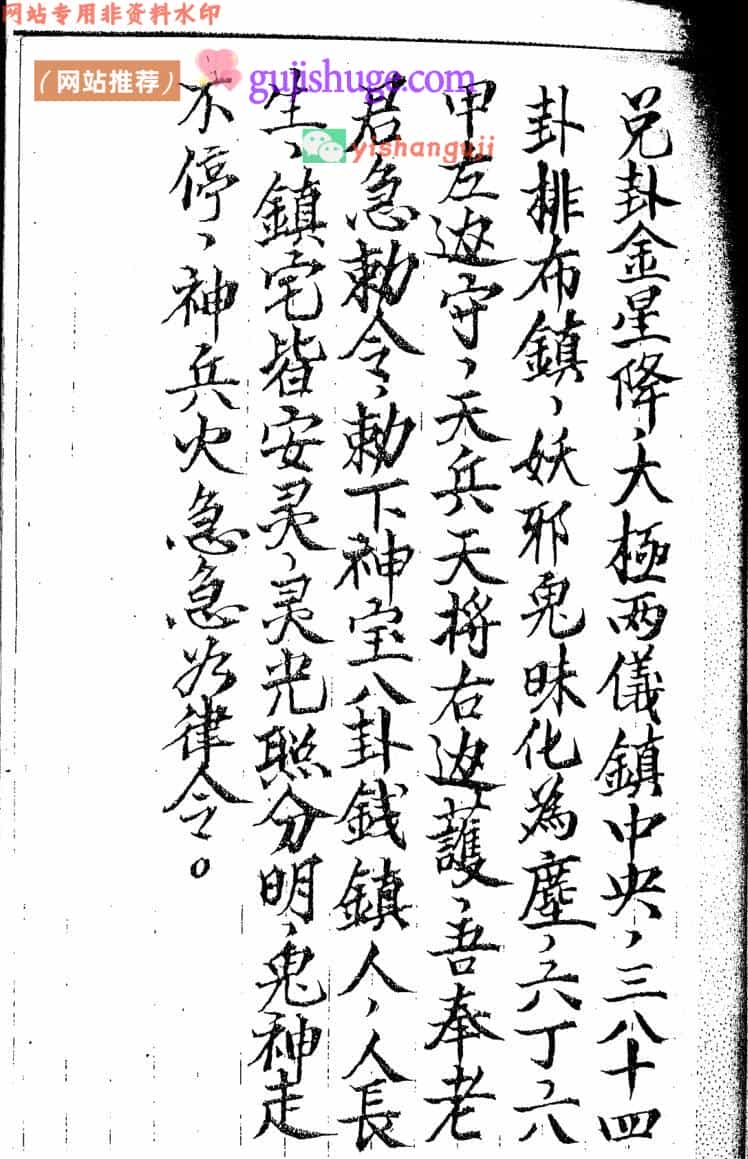 网站专用非资料水印
（网站推荐） gujishuge.com
yishanguji
兌卦金星降、大極两儀鎮中央、三八十四
卦排布鎮、妖邪鬼昧化為塵、六丁六
甲左边守、天兵天将右边護、吾奉老
君急勅令、勅下神宝八卦錢鎮人、人長
生、鎮宅皆安灵、灵光照分明、鬼神走
不停、神兵火急急如律令。